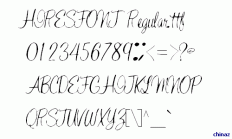 HIRESFONT Regular.ttf
0123456789:;<=>?@
ABCDEFGHIJKLMNOP
QRSTUVWXYZ[\]^_`
chinaz